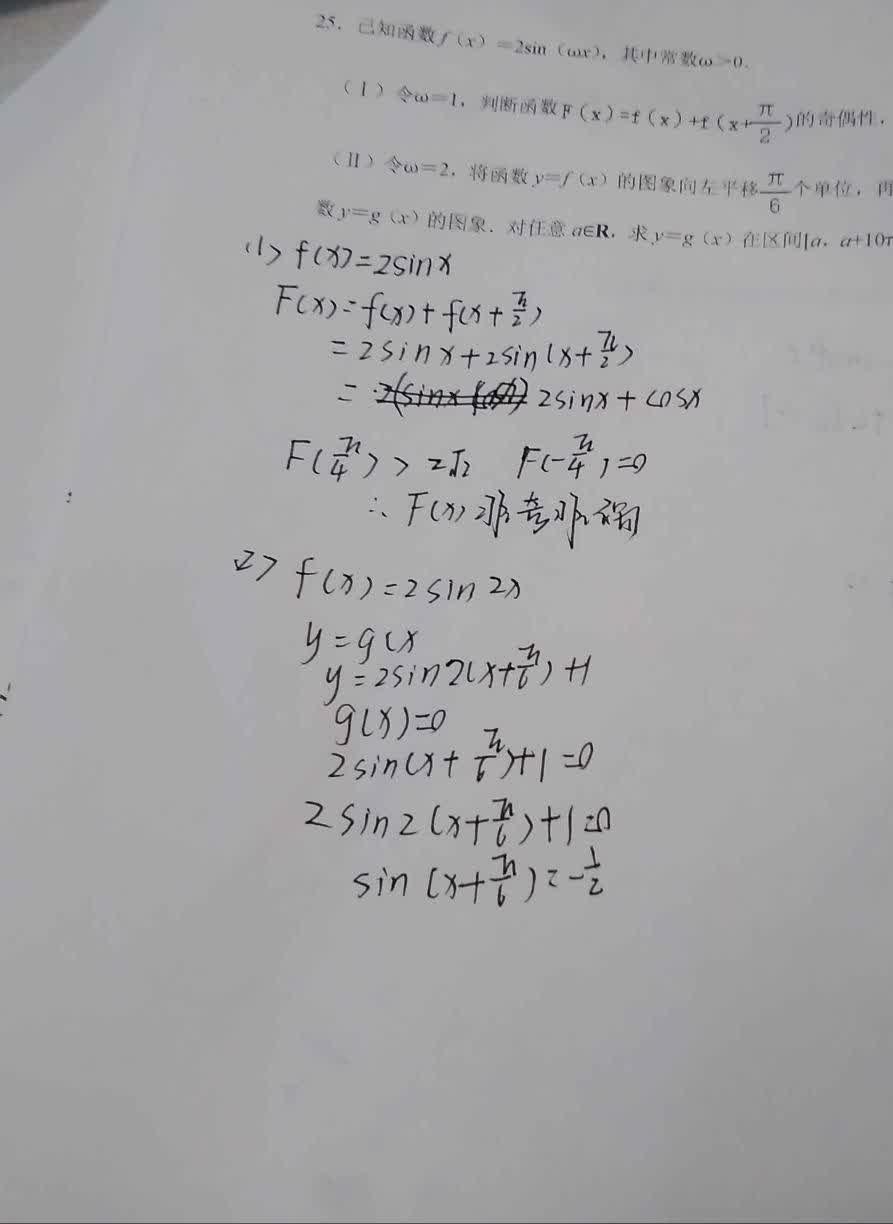 25. 已知函数f(x)=2sin(ωx),其中常数ω>0.
(Ⅰ)令ω=1,判断函数F(x)=f(x)+f(x+π/2)的奇偶性,
(Ⅱ)令ω=2,将函数y=f(x)的图象向左平移π/6个单位,再
数y=g(x)的图象.对任意a∈R,求y=g(x)在区间[a,a+10π
(1) f(x)=2sinx
F(x)=f(x)+f(x+π/2)
=2sinx+2sin(x+π/2)
= 2sinx+cosx
F(π/4)>2√2 F(-π/4)=0
∴F(x)非奇非偶
(2) f(x)=2sin2x
y=g(x
y=2sin2(x+π/6)+1
g(x)=0
2sin(x+π/6)+1=0
2sin2(x+π/6)+1=0
sin(x+π/6)=-1/2